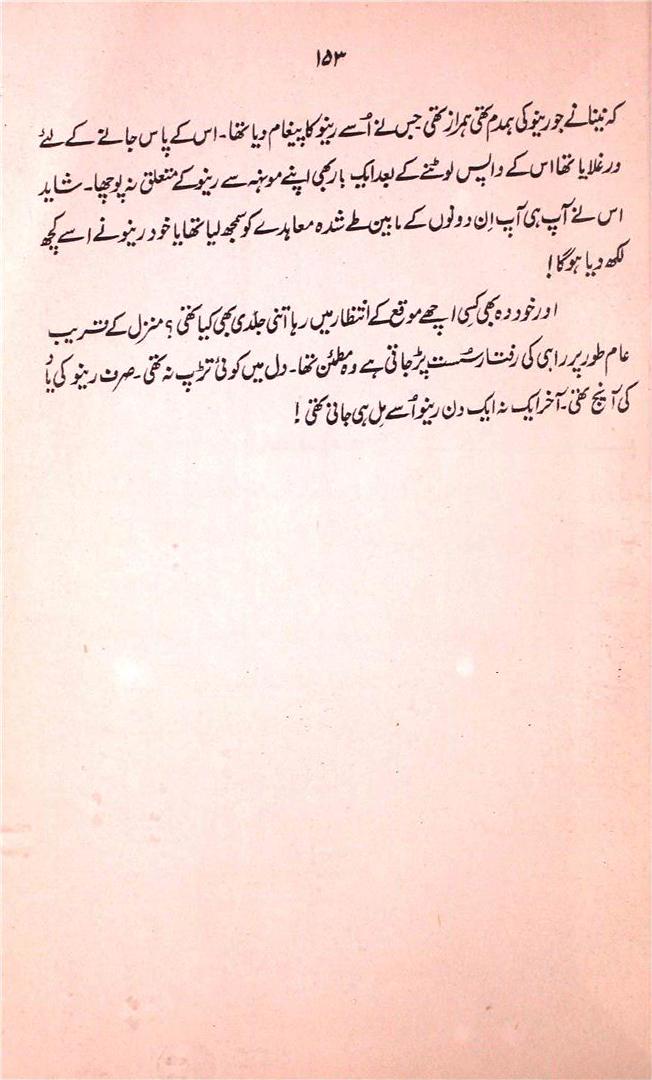 ۱۵۳
کہ نینا نے جو رینو کی ہمدم تھی ہمراز تھی جس نے اُسے رینو کا پیغام دیا تھا۔ اس کے پاس جانے کے لئے
ورغلایا تھا اس کے واپس لوٹنے کے بعد ایک بار بھی اپنے مونہہ سے رینو کے متعلق نہ پوچھا۔ شاید
اس نے آپ ہی آپ اِن دونوں کے مابین طے شدہ معاہدے کو سمجھ لیا تھا یا خود رینو نے اسے کچھ
لکھ دیا ہوگا!
اور خود وہ بھی کسی اچھے موقع کے انتظار میں رہا اتنی جلدی بھی کیا تھی؟ منزل کے قریب
عام طور پر راہی کی رفتار سُست پڑ جاتی ہے وہ مطمئن تھا۔ دل میں کوئی تڑپ نہ تھی۔ صرف رینو کی یاد
کی آنچ تھی۔ آخر ایک نہ ایک دن رینو اُسے مِل ہی جانی تھی!